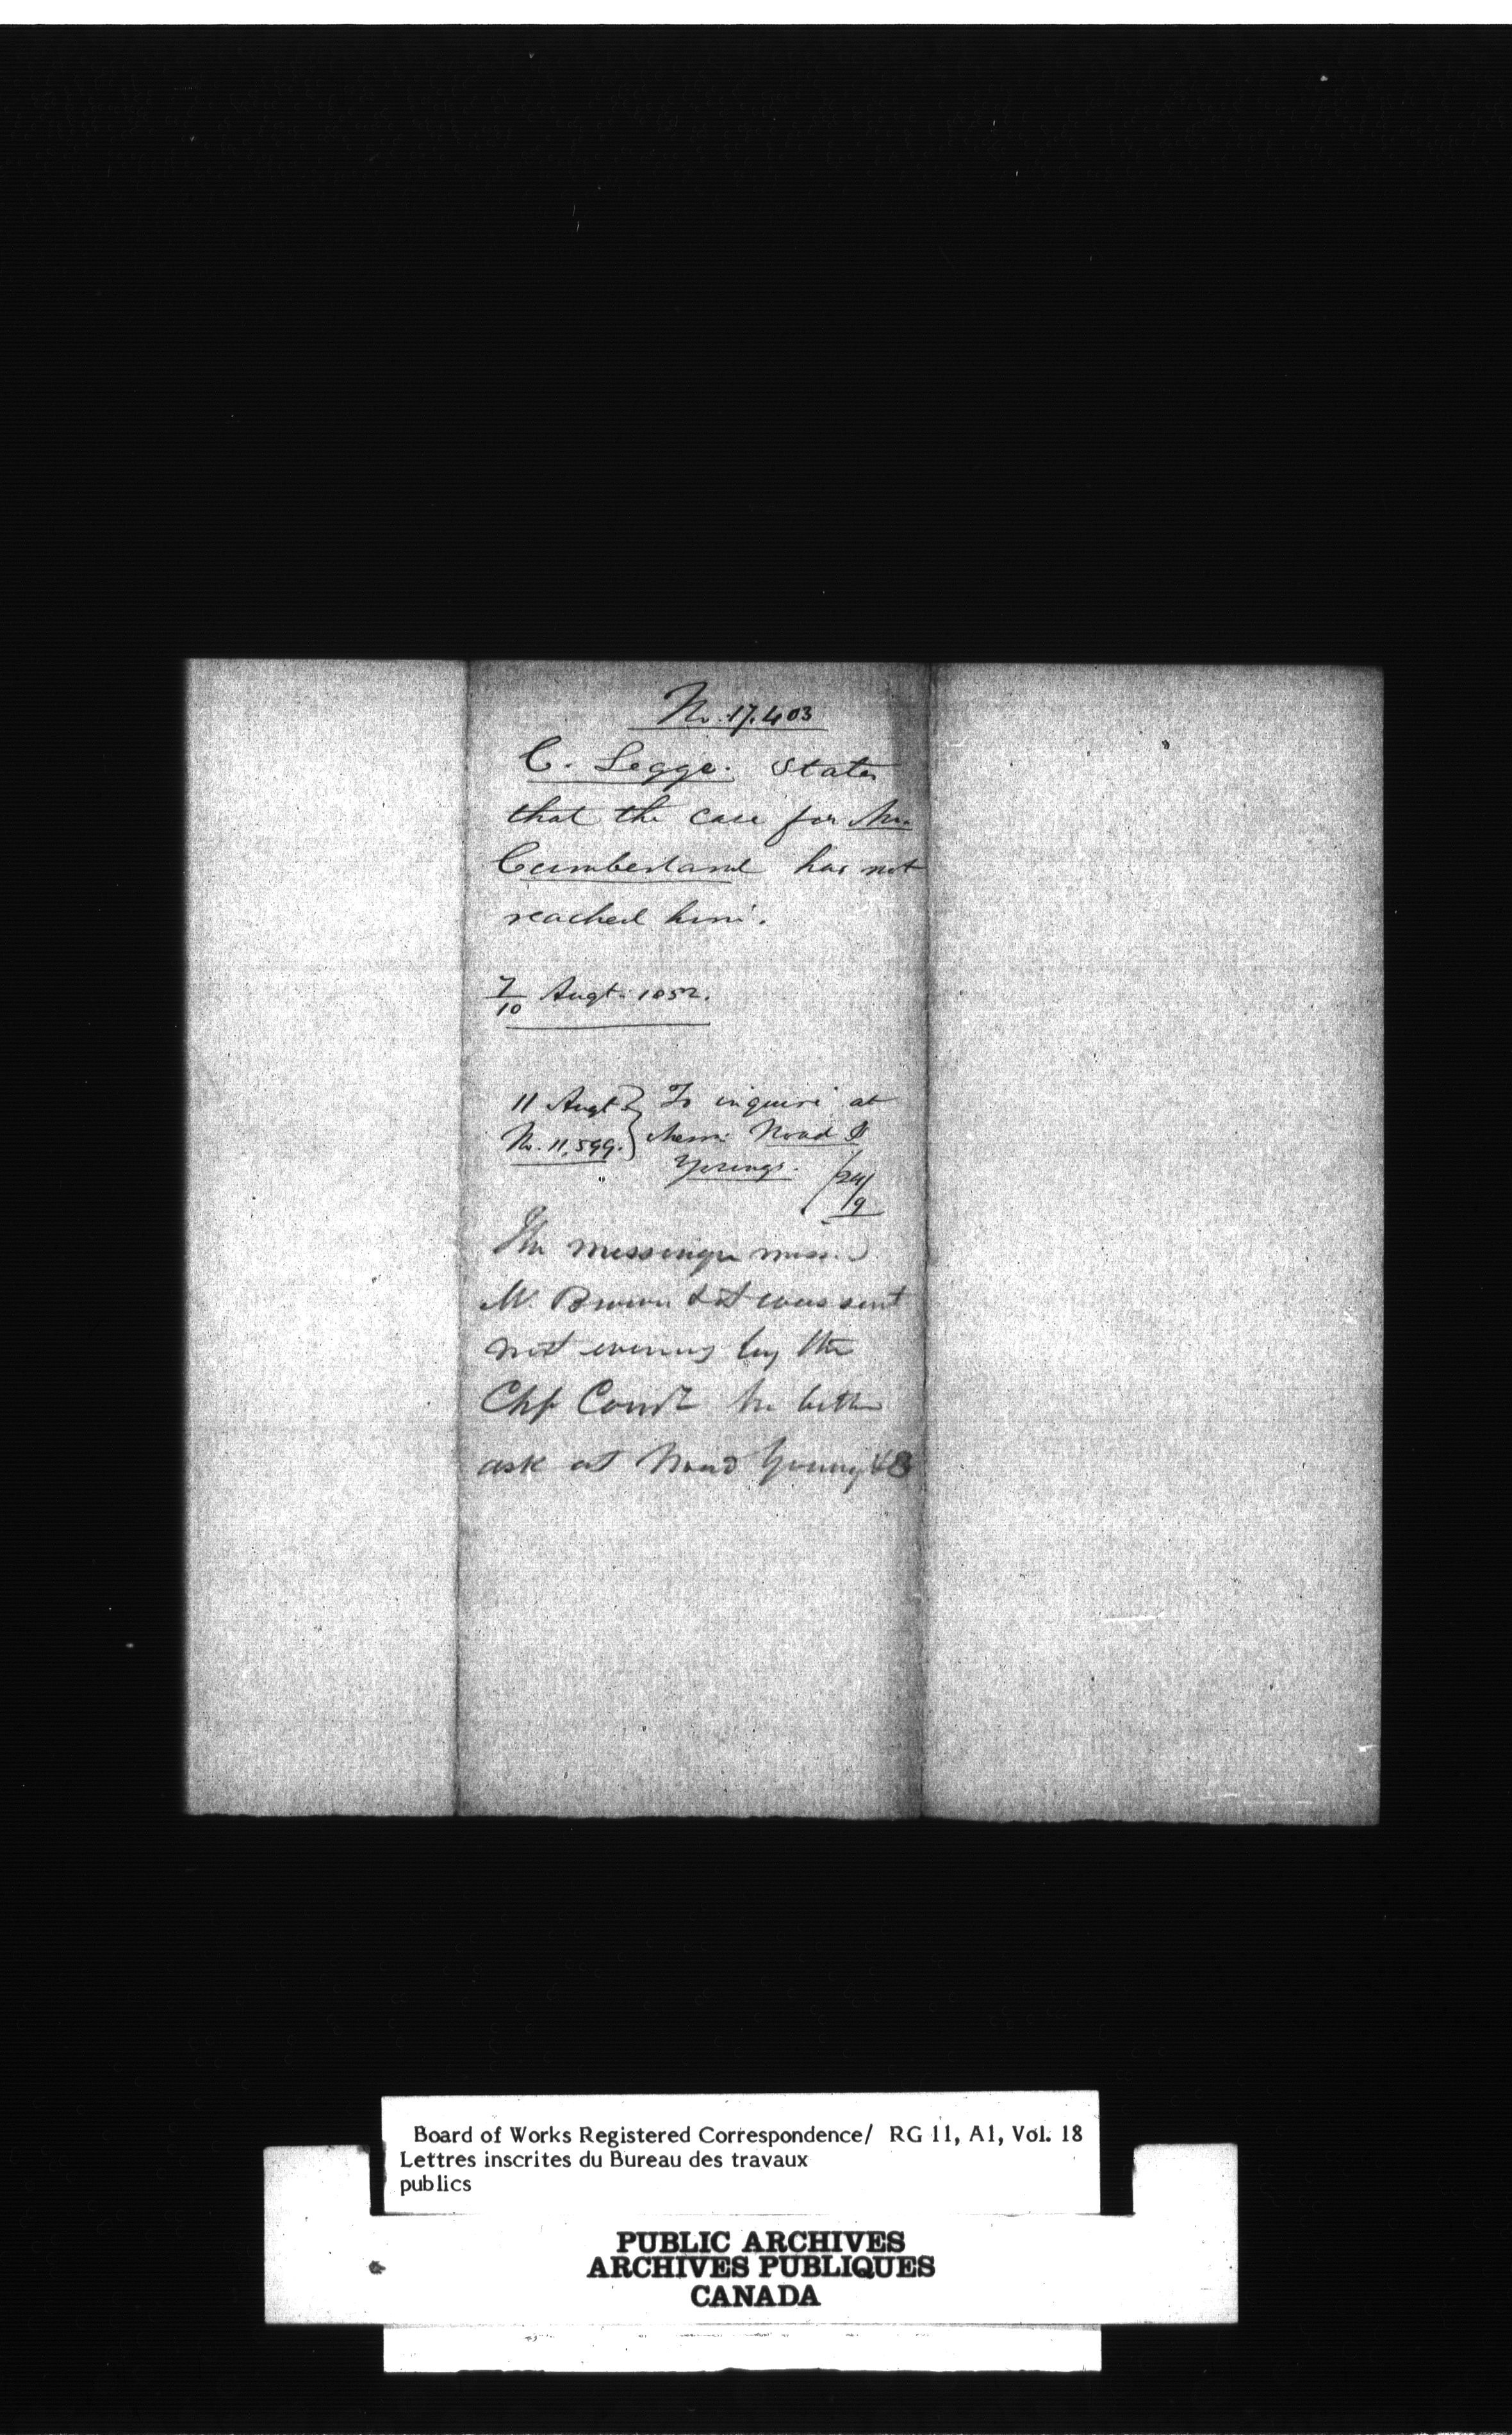 No. 17.403
C. Legge. States
that the case for Mr.
Cumberland has not
reached him.
7/10 Augt. 1852.
11 Augt. } To inquire at
No. 11,599. } Messrs. Noad &
Youngs.
24/9
The messenger missed
Mr. Brown & it was sent
next evening by the
Chf Comr he better
ask at Noad Young &
Board of Works Registered Correspondence/ RG 11, A1, Vol. 18
Lettres inscrites du Bureau des travaux
publics
PUBLIC ARCHIVES
ARCHIVES PUBLIQUES
CANADA